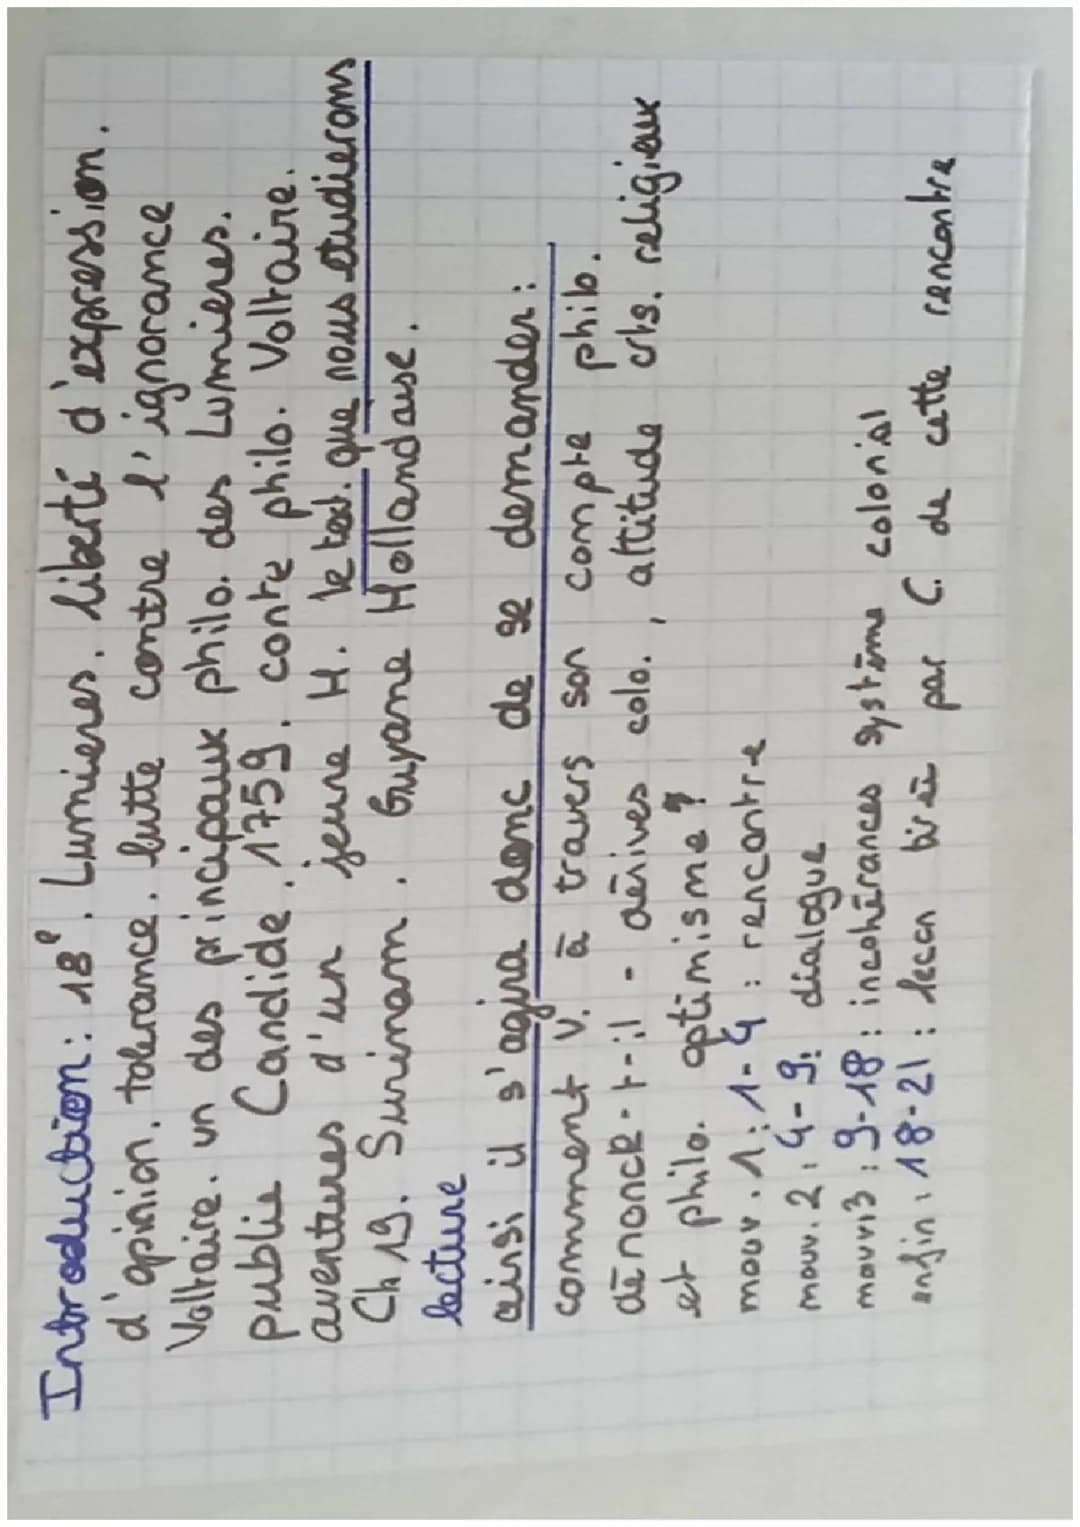 Introduction : 18e. Lumieres. liberté d'expression.
d'opinion. tolerance. lutte contre l'ignorance
Voltaire. un des principaux philo. des Lumieres.
publie Candide. 1759. conte philo. Voltaire.
aventures d'un jeune H. le text. que nous etudierons
Ch 19. Surinam. Guyane Hollandaise.
lecture
ainsi il s'agira donc de se demander :
comment V. à travers son compte philo.
dénonce-t-il - dérives colo., attitude crts. religieux
et philo. optimisme ?
mouv. 1 : 1-4 : rencontre
mouv. 2 : 4-9 : dialogue
mouv. 3 : 9-18 : incohérances système colonial
enfin : 18-21 : lecon tirée par C. de cette rencontre